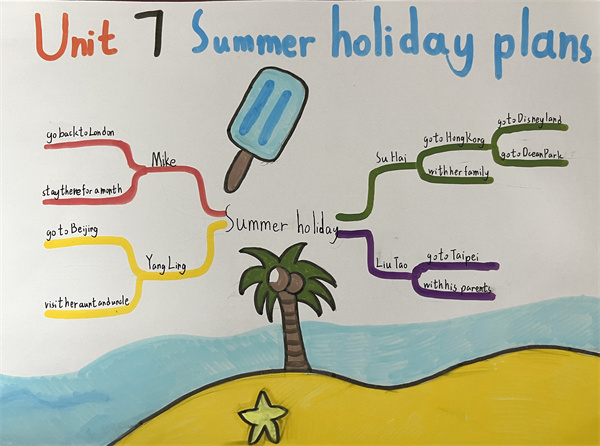 Unit 7 Summer holiday plans
go back to London
Mike
stay there for a month
go to Beijing
Yang Ling
visit her aunt and uncle
Summer holiday
Su Hai
go to Hong Kong
go to Disneyland
go to Ocean Park
with her family
Liu Tao
go to Taipei
with his parents